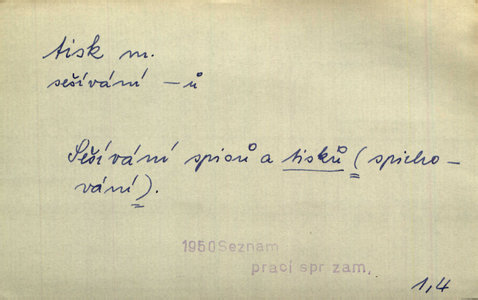 tisk m.
sešívání – ů
Sešívání spisů a tisků (spicho-
vání).
1950 Seznam
prací spr zam.
1,4